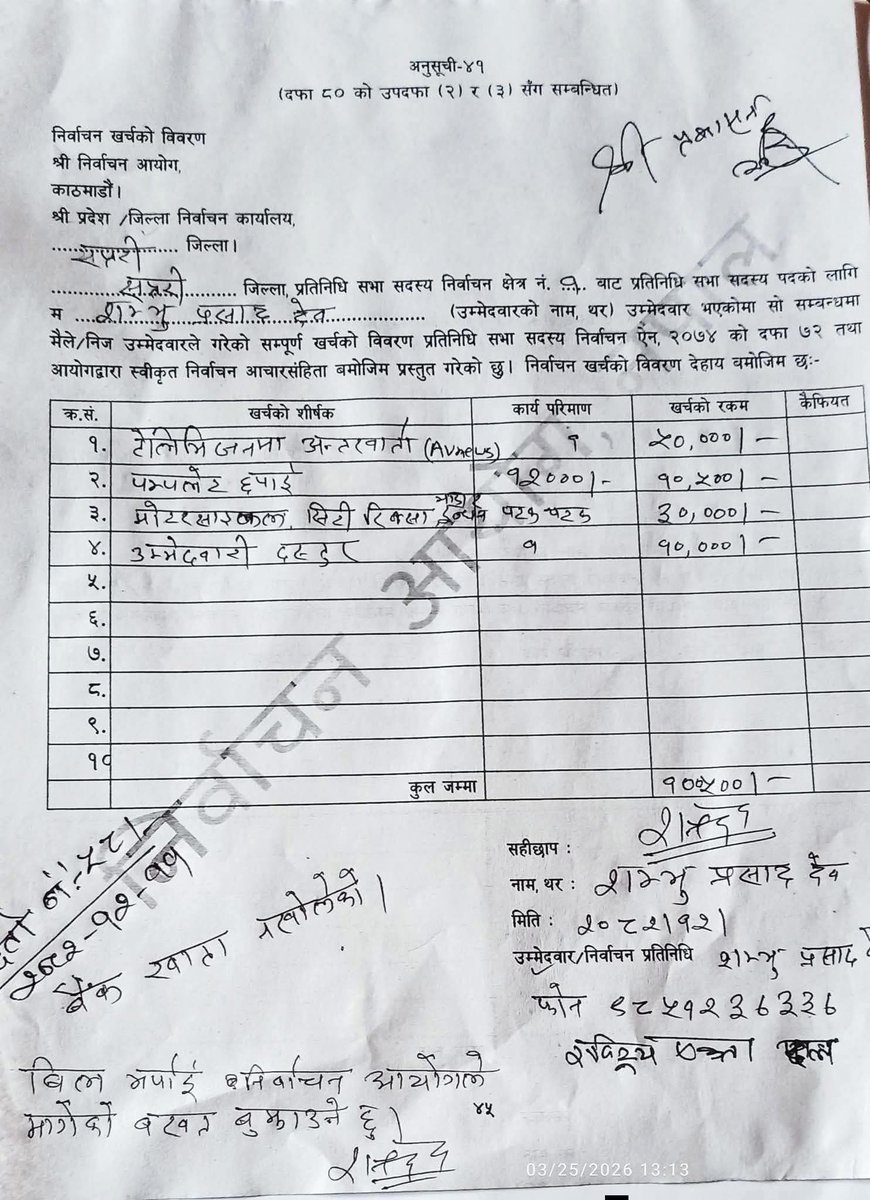 अनुसूची-४१
(दफा ८० को उपदफा (२) र (३) सँग सम्बन्धित)
श्री
निर्वाचन खर्चको विवरण
श्री निर्वाचन आयोग,
काठमाडौं।
श्री प्रदेश /जिल्ला निर्वाचन कार्यालय,
सप्तरी जिल्ला।
सप्तरी जिल्ला, प्रतिनिधि सभा सदस्य निर्वाचन क्षेत्र नं. बाट प्रतिनिधि सभा सदस्य पदको लागि
म शम्भु प्रसाद देव (उम्मेदवारको नाम, थर) उम्मेदवार भएकोमा सो सम्बन्धमा
मैले/निज उम्मेदवारले गरेको सम्पूर्ण खर्चको विवरण प्रतिनिधि सभा सदस्य निर्वाचन ऐन, २०७४ को दफा ७२ तथा
आयोगद्वारा स्वीकृत निर्वाचन आचारसंहिता बमोजिम प्रस्तुत गरेको छु। निर्वाचन खर्चको विवरण देहाय बमोजिम छः-
क्र.सं. खर्चको शीर्षक कार्य परिमाण खर्चको रकम कैफियत
१. टेलिभिजनमा अन्तरवार्ता (AVnews) १ ५०,०००।-
२. पम्पलेट छपाई १२०००।- १०,५००।-
३. मोटरसाइकल, सिटी रिक्सा भाडा र इन्धन पटक पटक ३०,०००।-
४. उम्मेदवारी दस्तुर १ १०,०००।-
५.
६.
७.
८.
९.
१०
कुल जम्मा १००५००।-
निर्वाचन आयोग, नेपाल
दर्ता नं:
२०८२-१२-११
बैंक खाता नखोलेको।
सहीछाप :
नाम, थर : शम्भु प्रसाद देव
मिति : २०८२।१२।
उम्मेदवार/निर्वाचन प्रतिनिधि शम्भु प्रसाद
फोन ९८५१२३६३३६
बिल भर्पाई निर्वाचन आयोगले
मागेको बखत बुझाउने छु।
४५
03/25/2026 13:13